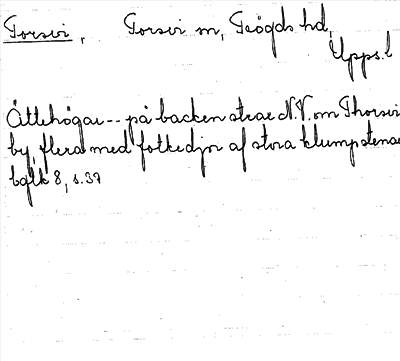 Torsvi, Torsvi sn, Trögds hd,
Upps. l
Ättehögar -- på backen strax N.V. om Thorsvi
by, flera med fotkedjor af stora klumpstenar
bqlk 8, s. 37